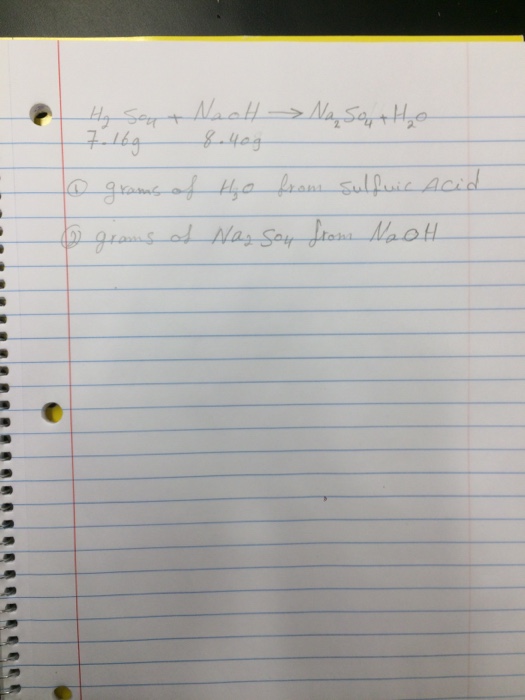 H₂ SO₄ + NaOH → Na₂SO₄ + H₂O
7.16g 8.40g
① grams of H₂O from Sulfuic Acid
② grams of Na₂ SO₄ from NaOH